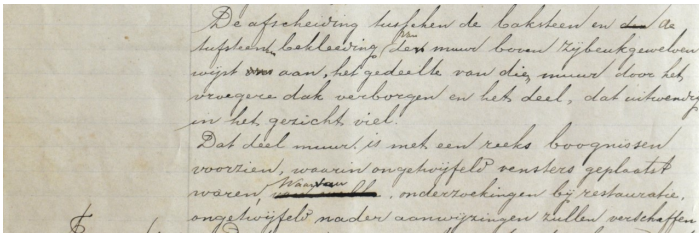 De afscheiding tusschen de baksteen en de
tufsteen bekleeding van den muur boven zijbeukgewelven
wijst aan, het gedeelte van die muur door het
vroegere dak verborgen en het deel, dat uitwendig
in het gezicht viel.
Dat deel muur is met een reeks boognissen
voorzien, waarin ongetwijfeld vensters geplaatst
waren, Waarvan onderzoekingen bij restauratie,
ongetwijfeld nader aanwijzingen zullen verschaffen